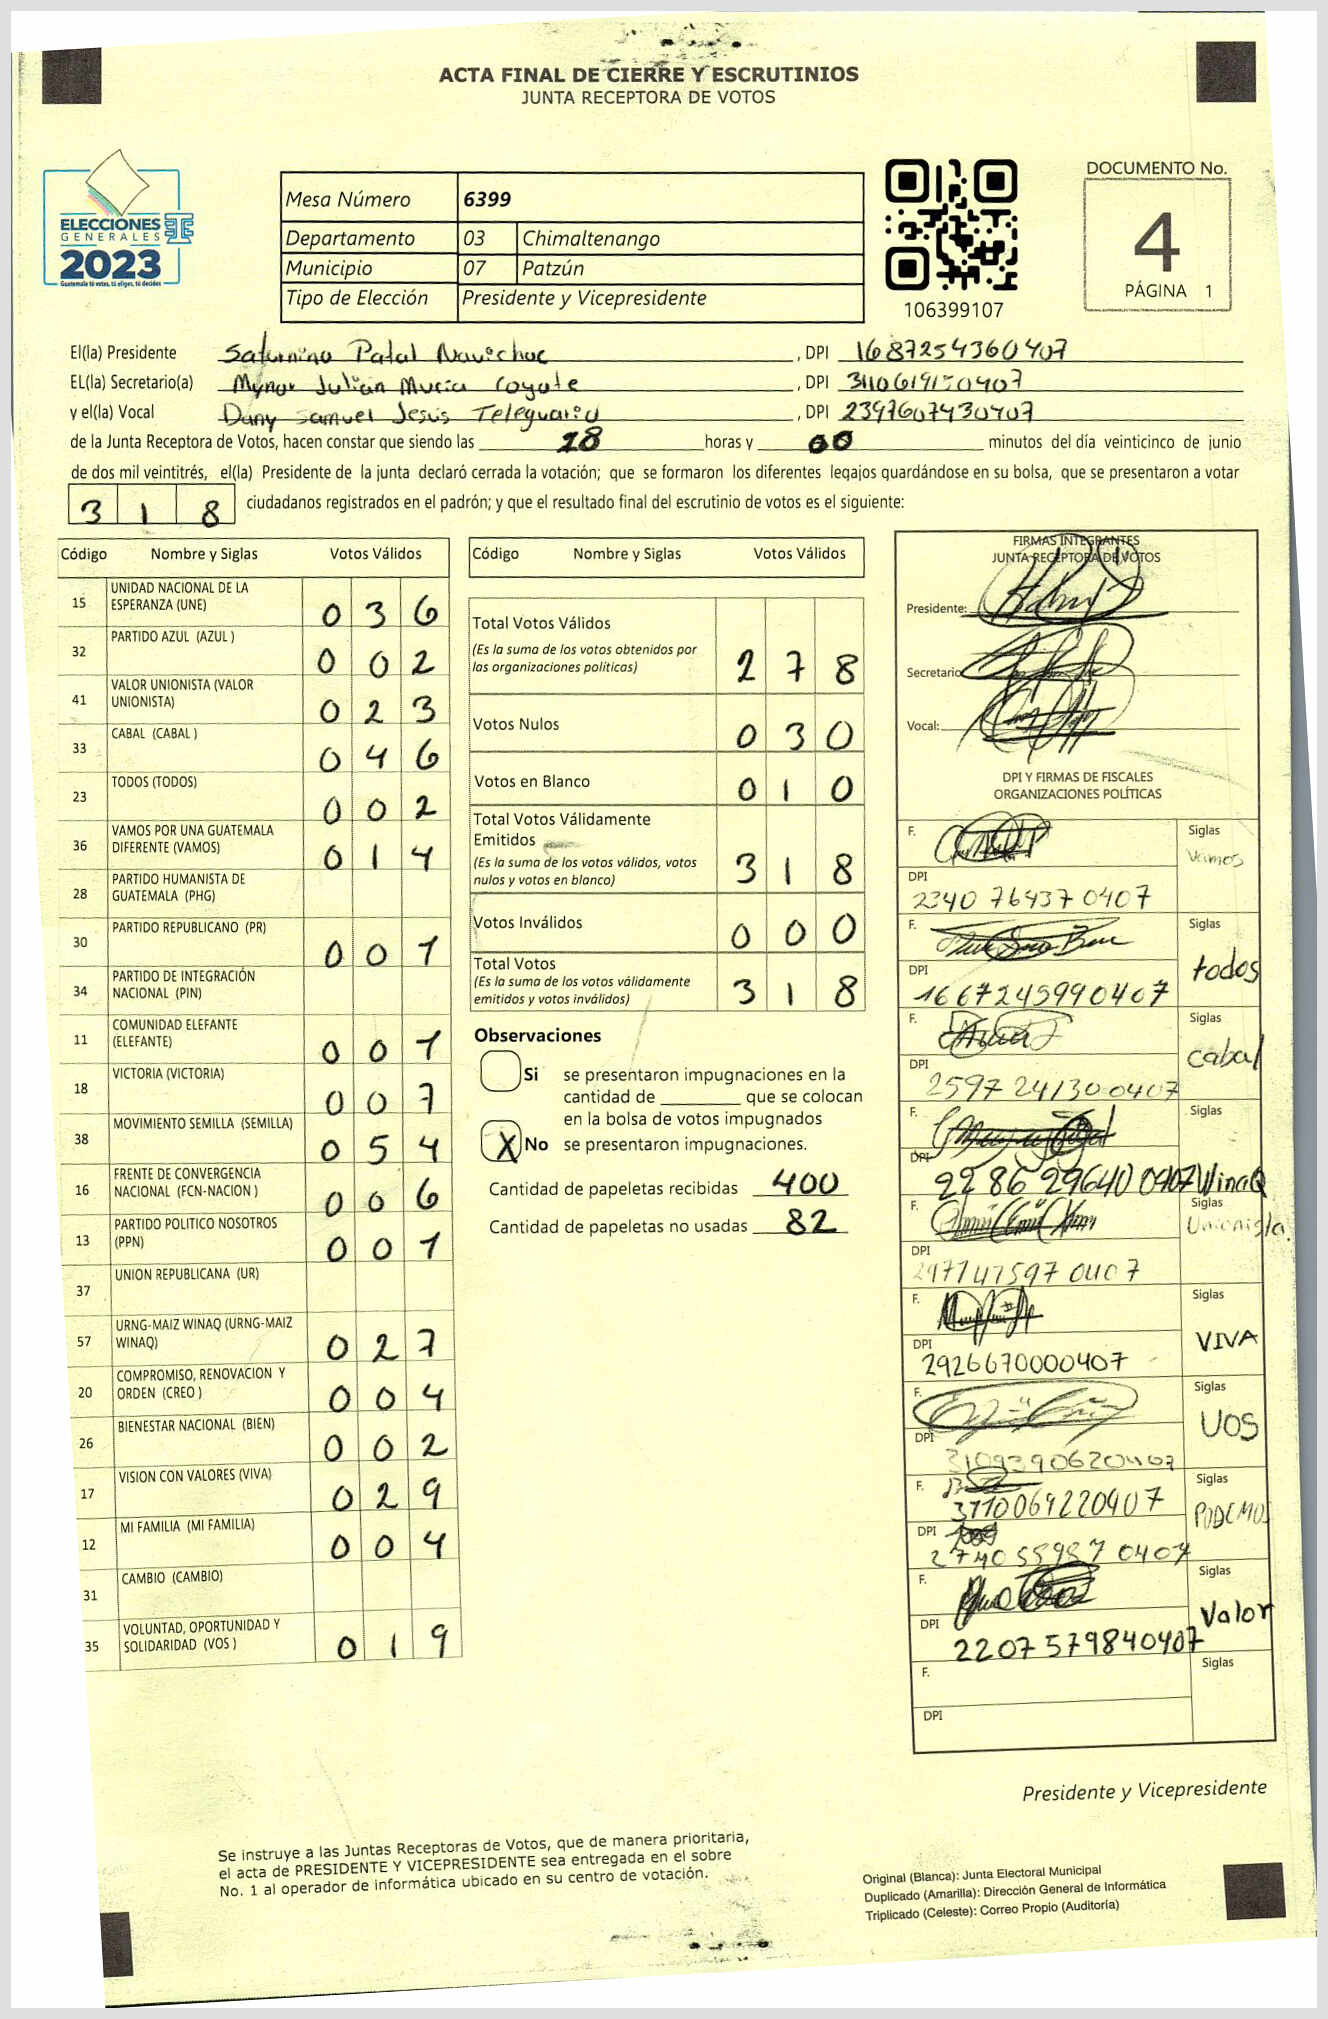 ACTA FINAL DE CIERRE Y ESCRUTINIOS
JUNTA RECEPTORA DE VOTOS
ELECCIONES
GENERALES
2023
Guatemala tú votas, tú eliges, tú decides
Mesa Número 6399
Departamento 03 Chimaltenango
Municipio 07 Patzún
Tipo de Elección Presidente y Vicepresidente
106399107
DOCUMENTO No.
4
PÁGINA 1
El(la) Presidente Saturnino Patal Navichoc, DPI 1687254360407
EL(la) Secretario(a) Mynor Julián Mucia Coyote, DPI
y el(la) Vocal Dany Samuel Jesús Teleguario, DPI 2397607430407
de la Junta Receptora de Votos, hacen constar que siendo las 18 horas y 00 minutos del día veinticinco de junio
de dos mil veintitrés, el(la) Presidente de la junta declaró cerrada la votación; que se formaron los diferentes legajos guardándose en su bolsa, que se presentaron a votar
318 ciudadanos registrados en el padrón; y que el resultado final del escrutinio de votos es el siguiente:
Código Nombre y Siglas Votos Válidos
15 UNIDAD NACIONAL DE LA ESPERANZA (UNE) 036
32 PARTIDO AZUL (AZUL ) 002
41 VALOR UNIONISTA (VALOR UNIONISTA) 023
33 CABAL (CABAL ) 046
23 TODOS (TODOS) 002
36 VAMOS POR UNA GUATEMALA DIFERENTE (VAMOS) 014
28 PARTIDO HUMANISTA DE GUATEMALA (PHG)
30 PARTIDO REPUBLICANO (PR) 001
34 PARTIDO DE INTEGRACIÓN NACIONAL (PIN)
11 COMUNIDAD ELEFANTE (ELEFANTE) 001
18 VICTORIA (VICTORIA) 007
38 MOVIMIENTO SEMILLA (SEMILLA) 054
16 FRENTE DE CONVERGENCIA NACIONAL (FCN-NACION ) 006
13 PARTIDO POLITICO NOSOTROS (PPN) 001
37 UNION REPUBLICANA (UR)
57 URNG-MAIZ WINAQ (URNG-MAIZ WINAQ) 027
20 COMPROMISO, RENOVACION Y ORDEN (CREO ) 004
26 BIENESTAR NACIONAL (BIEN) 002
17 VISION CON VALORES (VIVA) 029
12 MI FAMILIA (MI FAMILIA) 004
31 CAMBIO (CAMBIO)
35 VOLUNTAD, OPORTUNIDAD Y SOLIDARIDAD (VOS ) 019
Código Nombre y Siglas Votos Válidos
Total Votos Válidos
(Es la suma de los votos obtenidos por las organizaciones políticas) 278
Votos Nulos 030
Votos en Blanco 010
Total Votos Válidamente Emitidos
(Es la suma de los votos válidos, votos nulos y votos en blanco) 318
Votos Inválidos 000
Total Votos
(Es la suma de los votos válidamente emitidos y votos inválidos) 318
Observaciones
Si se presentaron impugnaciones en la
cantidad de ________ que se colocan
en la bolsa de votos impugnados
X No se presentaron impugnaciones.
Cantidad de papeletas recibidas 400
Cantidad de papeletas no usadas 82
FIRMAS INTEGRANTES
JUNTA RECEPTORA DE VOTOS
Presidente:
Secretario
Vocal:
DPI Y FIRMAS DE FISCALES
ORGANIZACIONES POLÍTICAS
F. Siglas Vamos
DPI 2340 76437 0407
F. Siglas todos
DPI 1667245990407
F. Siglas cabal
DPI 2597 24130 0407
F. Siglas WinaQ
DPI 2286 29640 0407
F. Siglas Unionista.
DPI
F. Siglas VIVA
DPI 2926670000407
F. Siglas VOS
DPI 3109390620407
F. Siglas PODEMOS
3710069220407
DPI 2740 55987 0407
F. Siglas Valor
DPI 2207579840407
F. Siglas
DPI
Presidente y Vicepresidente
Se instruye a las Juntas Receptoras de Votos, que de manera prioritaria,
el acta de PRESIDENTE Y VICEPRESIDENTE sea entregada en el sobre
No. 1 al operador de informática ubicado en su centro de votación.
Original (Blanca): Junta Electoral Municipal
Duplicado (Amarilla): Dirección General de Informática
Triplicado (Celeste): Correo Propio (Auditoría)